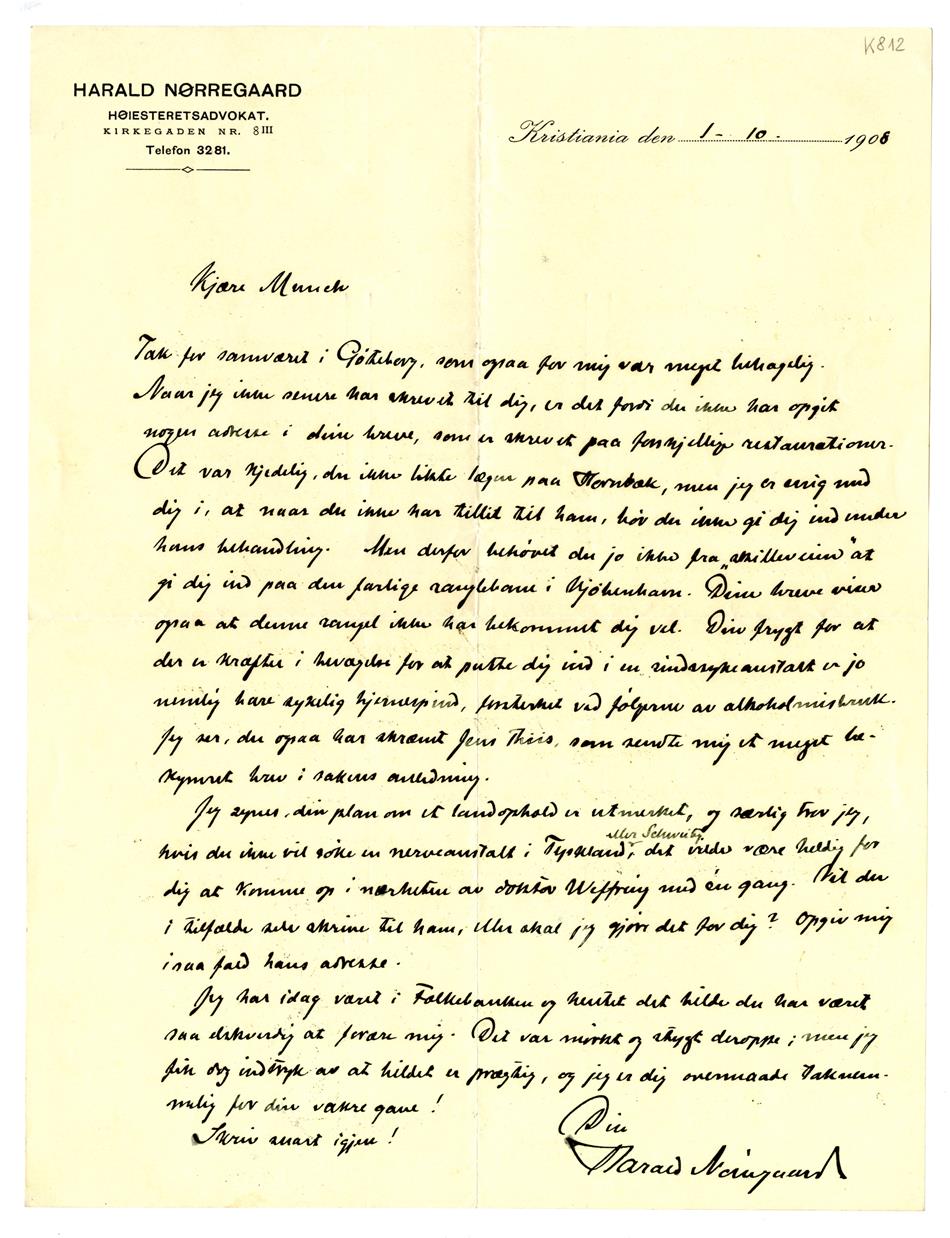 K812
HARALD NØRREGAARD
HØIESTERETSADVOKAT.
KIRKEGADEN NR. 8 III
Telefon 3281.
Kristiania den 1 - 10 - 1908
Kjære Munch
Tak for samværet i Göteborg, som ogsaa for mig var meget behagelig.
Naar jeg ikke senere har skrevet til dig, er det fordi du ikke har opgit
nogen adresse i dine breve, som er skrevet paa forskjellige restaurationer.
Det var kjedelig, du ikke likte lægen paa Hornbæk, men jeg er enig med
dig i, at naar du ikke har tillit til ham, bör du ikke gi dig ind under
hans behandling. Men derfor behövet du jo ikke fra „skilleveien" at
gi dig ind paa den farlige ranglebane i Kjöbenhavn. Dine breve viser
ogsaa at denne rangel ikke har bekommet dig vel. Din frygt for at
der er kræfter i bevægelse for at putte dig ind i en sindssykeanstalt er jo
nemlig bare sykelig hjernespind, forsterket ved fölgerne av alkoholmisbruk.
Jeg ser, du ogsaa har skræmt Jens Thiis, som sendte mig et meget be-
kymret brev i sakens anledning.
Jeg synes, din plan om et landophold er utmerket, og særlig tror jeg,
eller Schweitz
hvis du ikke vil söke en nerveanstalt i Tyskland, det vilde være heldig for
dig at komme op i nærheten av doktor Weffring med én gang. Vil du
i tilfælde selv skrive til ham, eller skal jeg gjöre det for dig? Opgiv mig
isaafald hans adresse.
Jeg har idag været i Folkebanken og hentet det bilde du har været
saa elskverdig at forære mig. Det var mörkt og stygt deroppe; men jeg
fik dog indtryk av at bildet er prægtig, og jeg er dig overmaade taknem-
melig for din vakre gave!
Skriv snart igjen!
Din
Harald Nörregaard